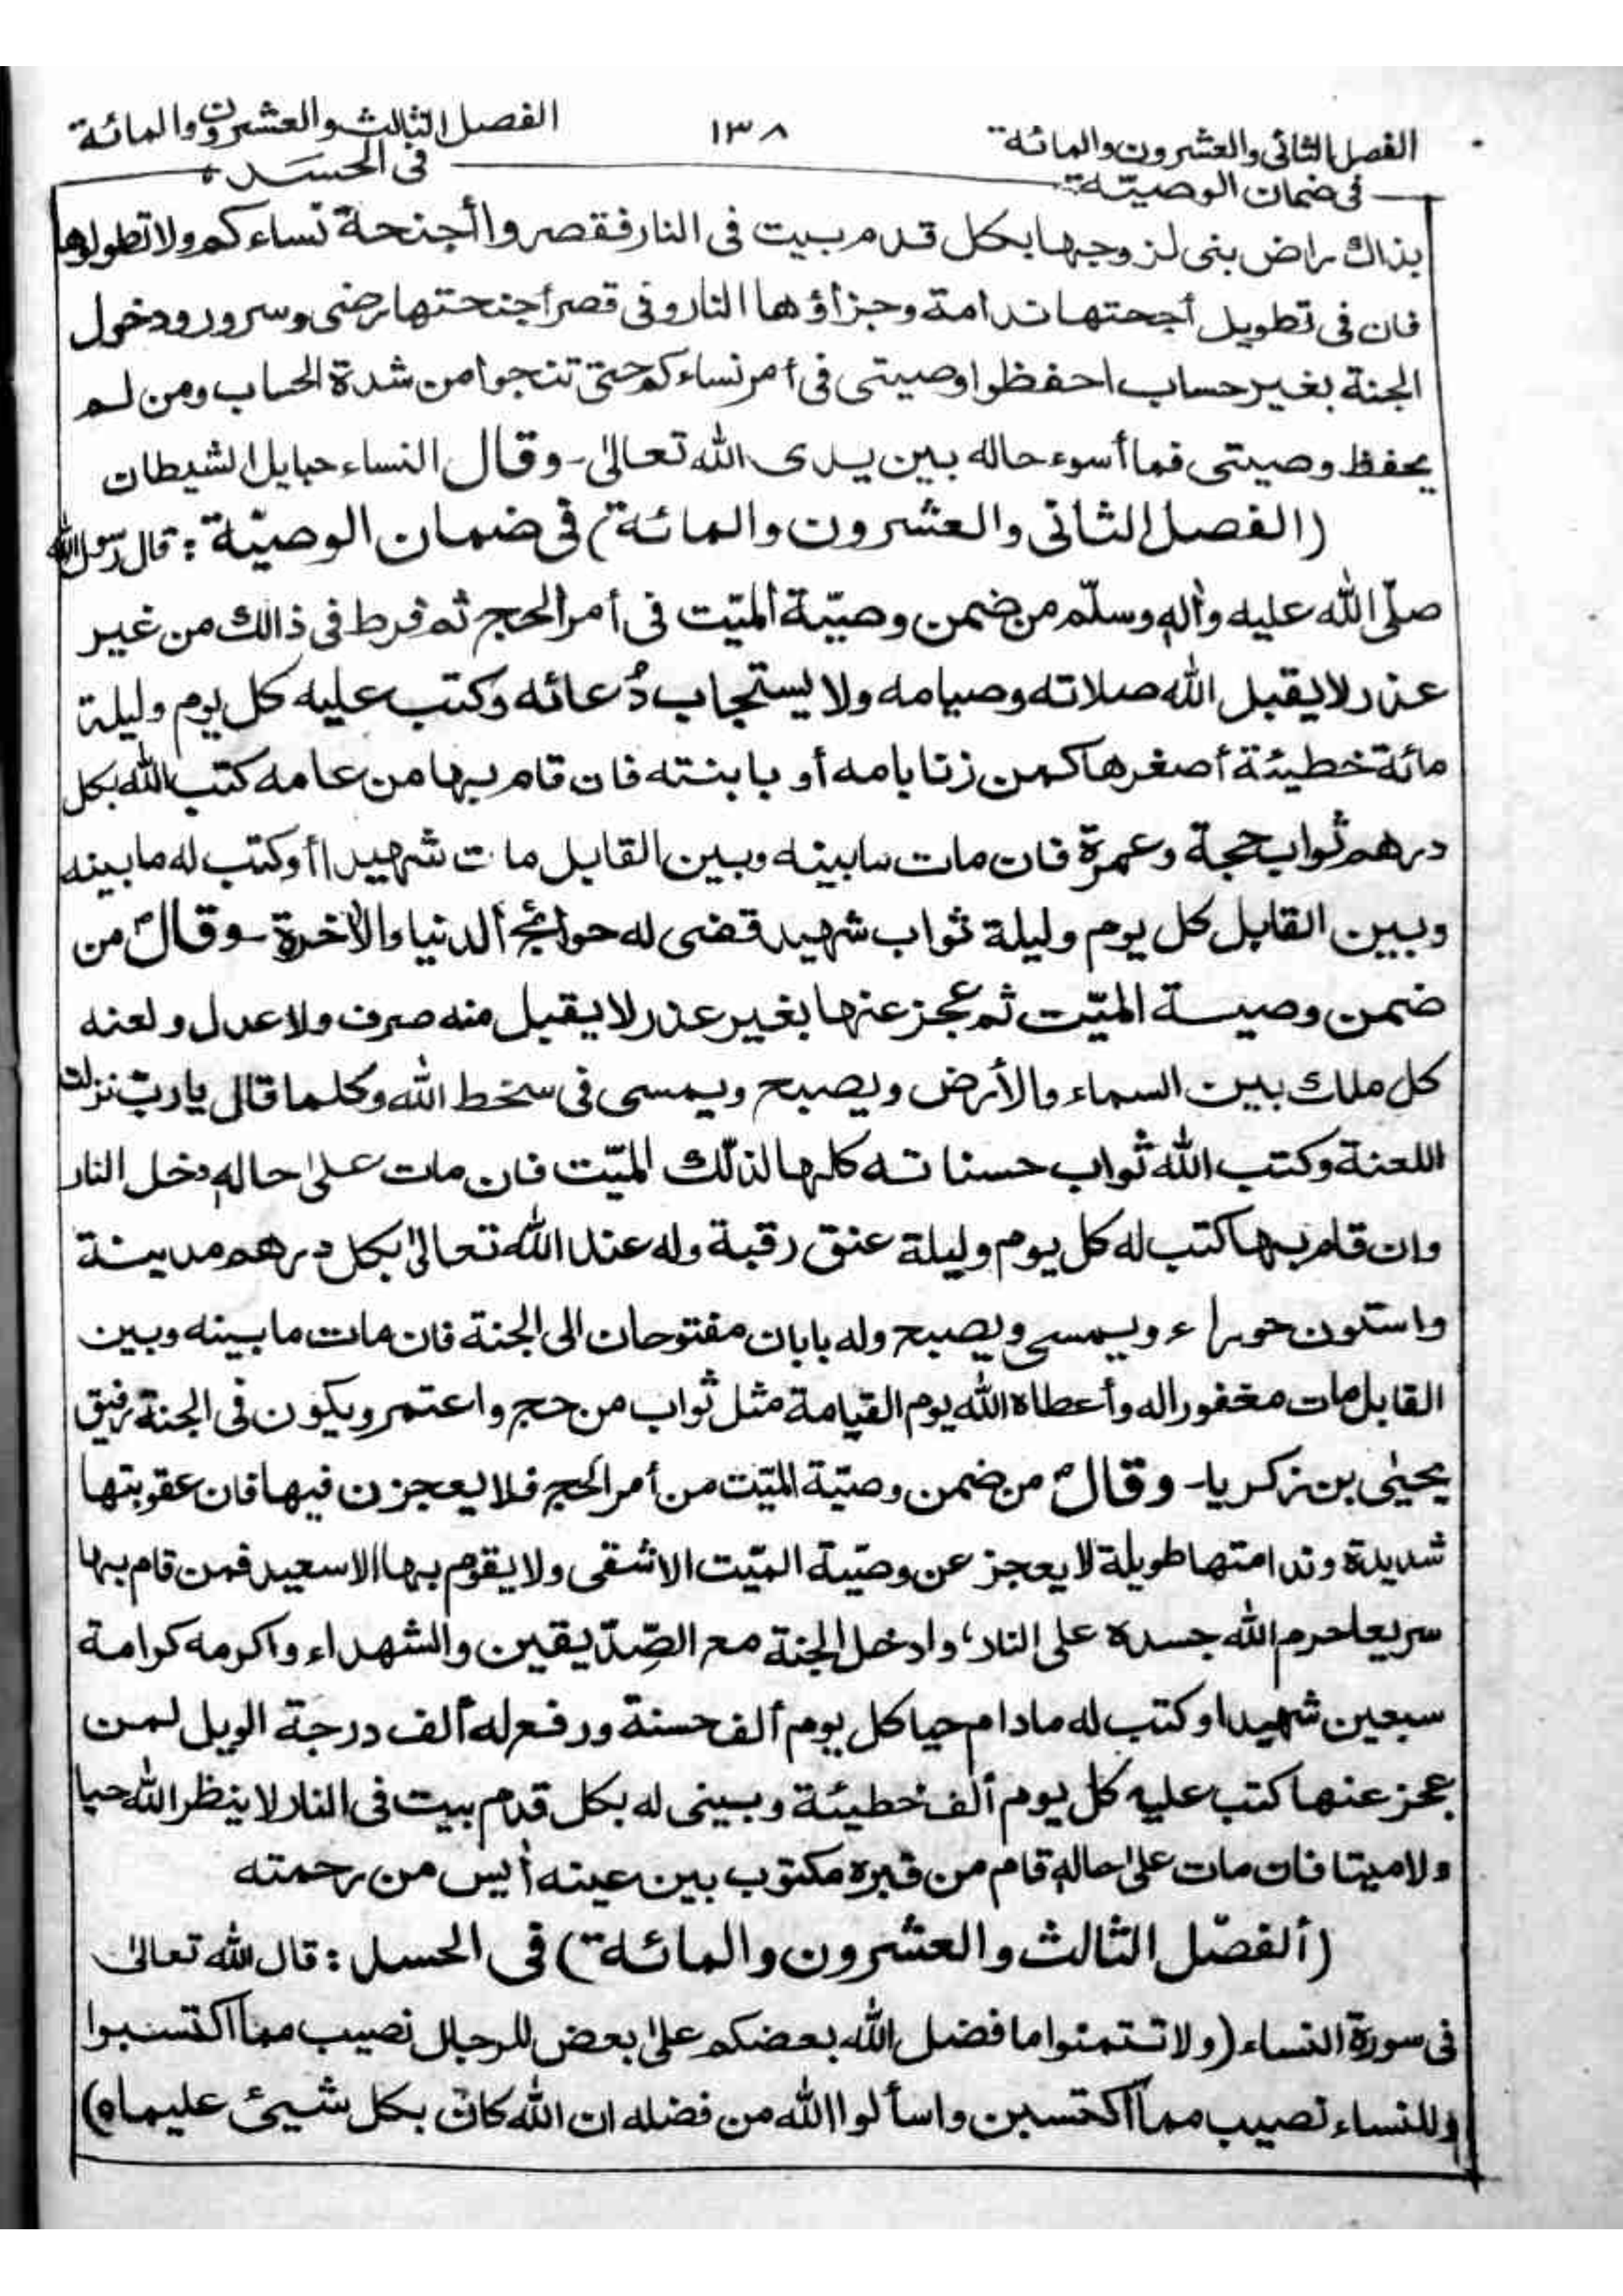 الفصل الثانى والعشرون والمائة
فى ضمان الوصيّة
١٣٨
الفصل الثالث والعشرون والمائة
فى الحسد
بذاك راض بنى لزوجها بكل قدم بيت فى النار فقصروا أجنحة نساءكم ولا تطولوها
فان فى تطويل أجحتها ندامة وجزاؤها النار وفى قصر أجنحتها رضى وسرور ودخول
الجنة بغير حساب احفظوا وصيتى فى أمر نساءكم حتى تنجوا من شدة الحساب ومن لم
يحفظ وصيتى فما أسوء حاله بين يدى الله تعالىٰ - وقال النساء حبايل الشيطان
(الفصل الثانى والعشرون والمائة) فى ضمان الوصيّة : قال رسول الله
صلّى الله عليه واٰله وسلّم من ضمن وصيّة الميّت فى أمر الحج ثم فرط فى ذالك من غير
عذر لا يقبل الله صلاته وصيامه ولا يستجاب دُعائه وكتب عليه كل يوم وليلة
مائة خطيئة أصغرها كمن زنا بامه أو بابنته فان قام بها من عامه كتب الله بكل
درهم ثواب حجة وعمرة فان مات مابينه وبين القابل مات شهيدا أوكتب له مابينه
وبين القابل كل يوم وليلة ثواب شهيد قضى له حوائج الدنيا والاٰخرة - وقال من
ضمن وصيسة الميّت ثم عجز عنها بغير عذر لا يقبل منه صرف ولا عدل ولعنه
كل ملك بين السماء والأرض ويصبح ويمسى فى سخط الله وكلما قال يا ربّ نزلت
اللعنة وكتب الله ثواب حسناته كلها لذلك الميّت فان مات علىٰ حاله دخل النار
وان قام بها كتب له كل يوم وليلة عنق رقبة وله عند الله تعالىٰ بكل درهم مدينة
واستون حوراء ويمسى ويصبح وله بابان مفتوحان الى الجنة فان مات مابينه وبين
القابل مات مغفورا له وأعطاه الله يوم القيامة مثل ثواب من حج واعتمر ويكون فى الجنة رفيق
يحيٰى بن زكريا - وقال من ضمن وصيّة الميّت من أمر الحج فلا يعجزن فيها فان عقوبتها
شديدة وندامتها طويلة لا يعجز عن وصيّة الميّت الا شقى ولا يقوم بها الا سعيد فمن قام بها
سريعا حرم الله جسده على النار، وادخل الجنة مع الصّدّيقين والشهداء واكرمه كرامة
سبعين شهيدا وكتب له مادام حيا كل يوم ألف حسنة ورفع له ألف درجة الويل لمن
عجز عنها كتب عليه كل يوم ألف خطيئة ويبنى له بكل قدم بيت فى النار لا ينظر الله حيا
ولا ميتا فان مات علىٰ حاله قام من قبره مكتوب بين عينه أيس من رحمته
(ألفصّل الثالث والعشرون والمائة) فى الحسد : قال الله تعالىٰ
فى سورة النساء (ولا تتمنوا ما فضل الله بعضكم علىٰ بعض للرجال نصيب مما اكتسبوا
وللنساء نصيب مما اكتسبن واسألوا الله من فضله ان الله كان بكل شيئ عليماه)